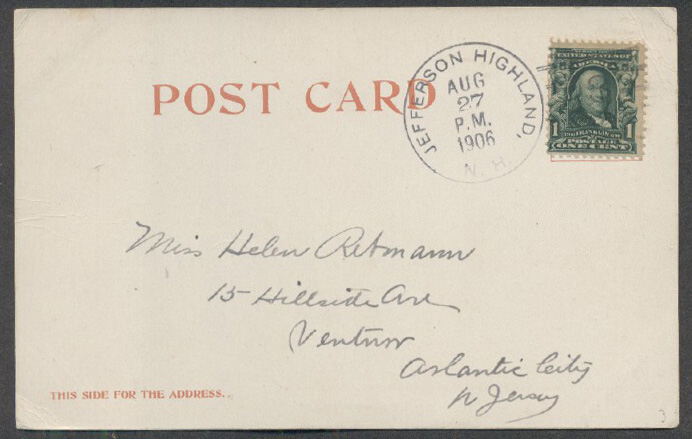 POST CARD
JEFFERSON HIGHLAND,
AUG
27
P.M.
1906
N.H.
UNITED STATES OF
AMERICA
1 1
FRANKLIN
POSTAGE
ONE CENT
Miss Helen Retmann
15 Hillside Ave
Ventnor
Atlantic City
N Jersey
THIS SIDE FOR THE ADDRESS.
3